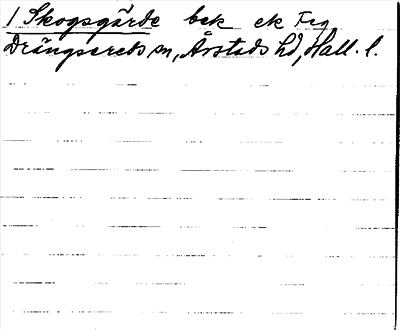 1 Skogsgärde bek ek Feg
Drängsereds sn, Årstads hd, Hall. l.